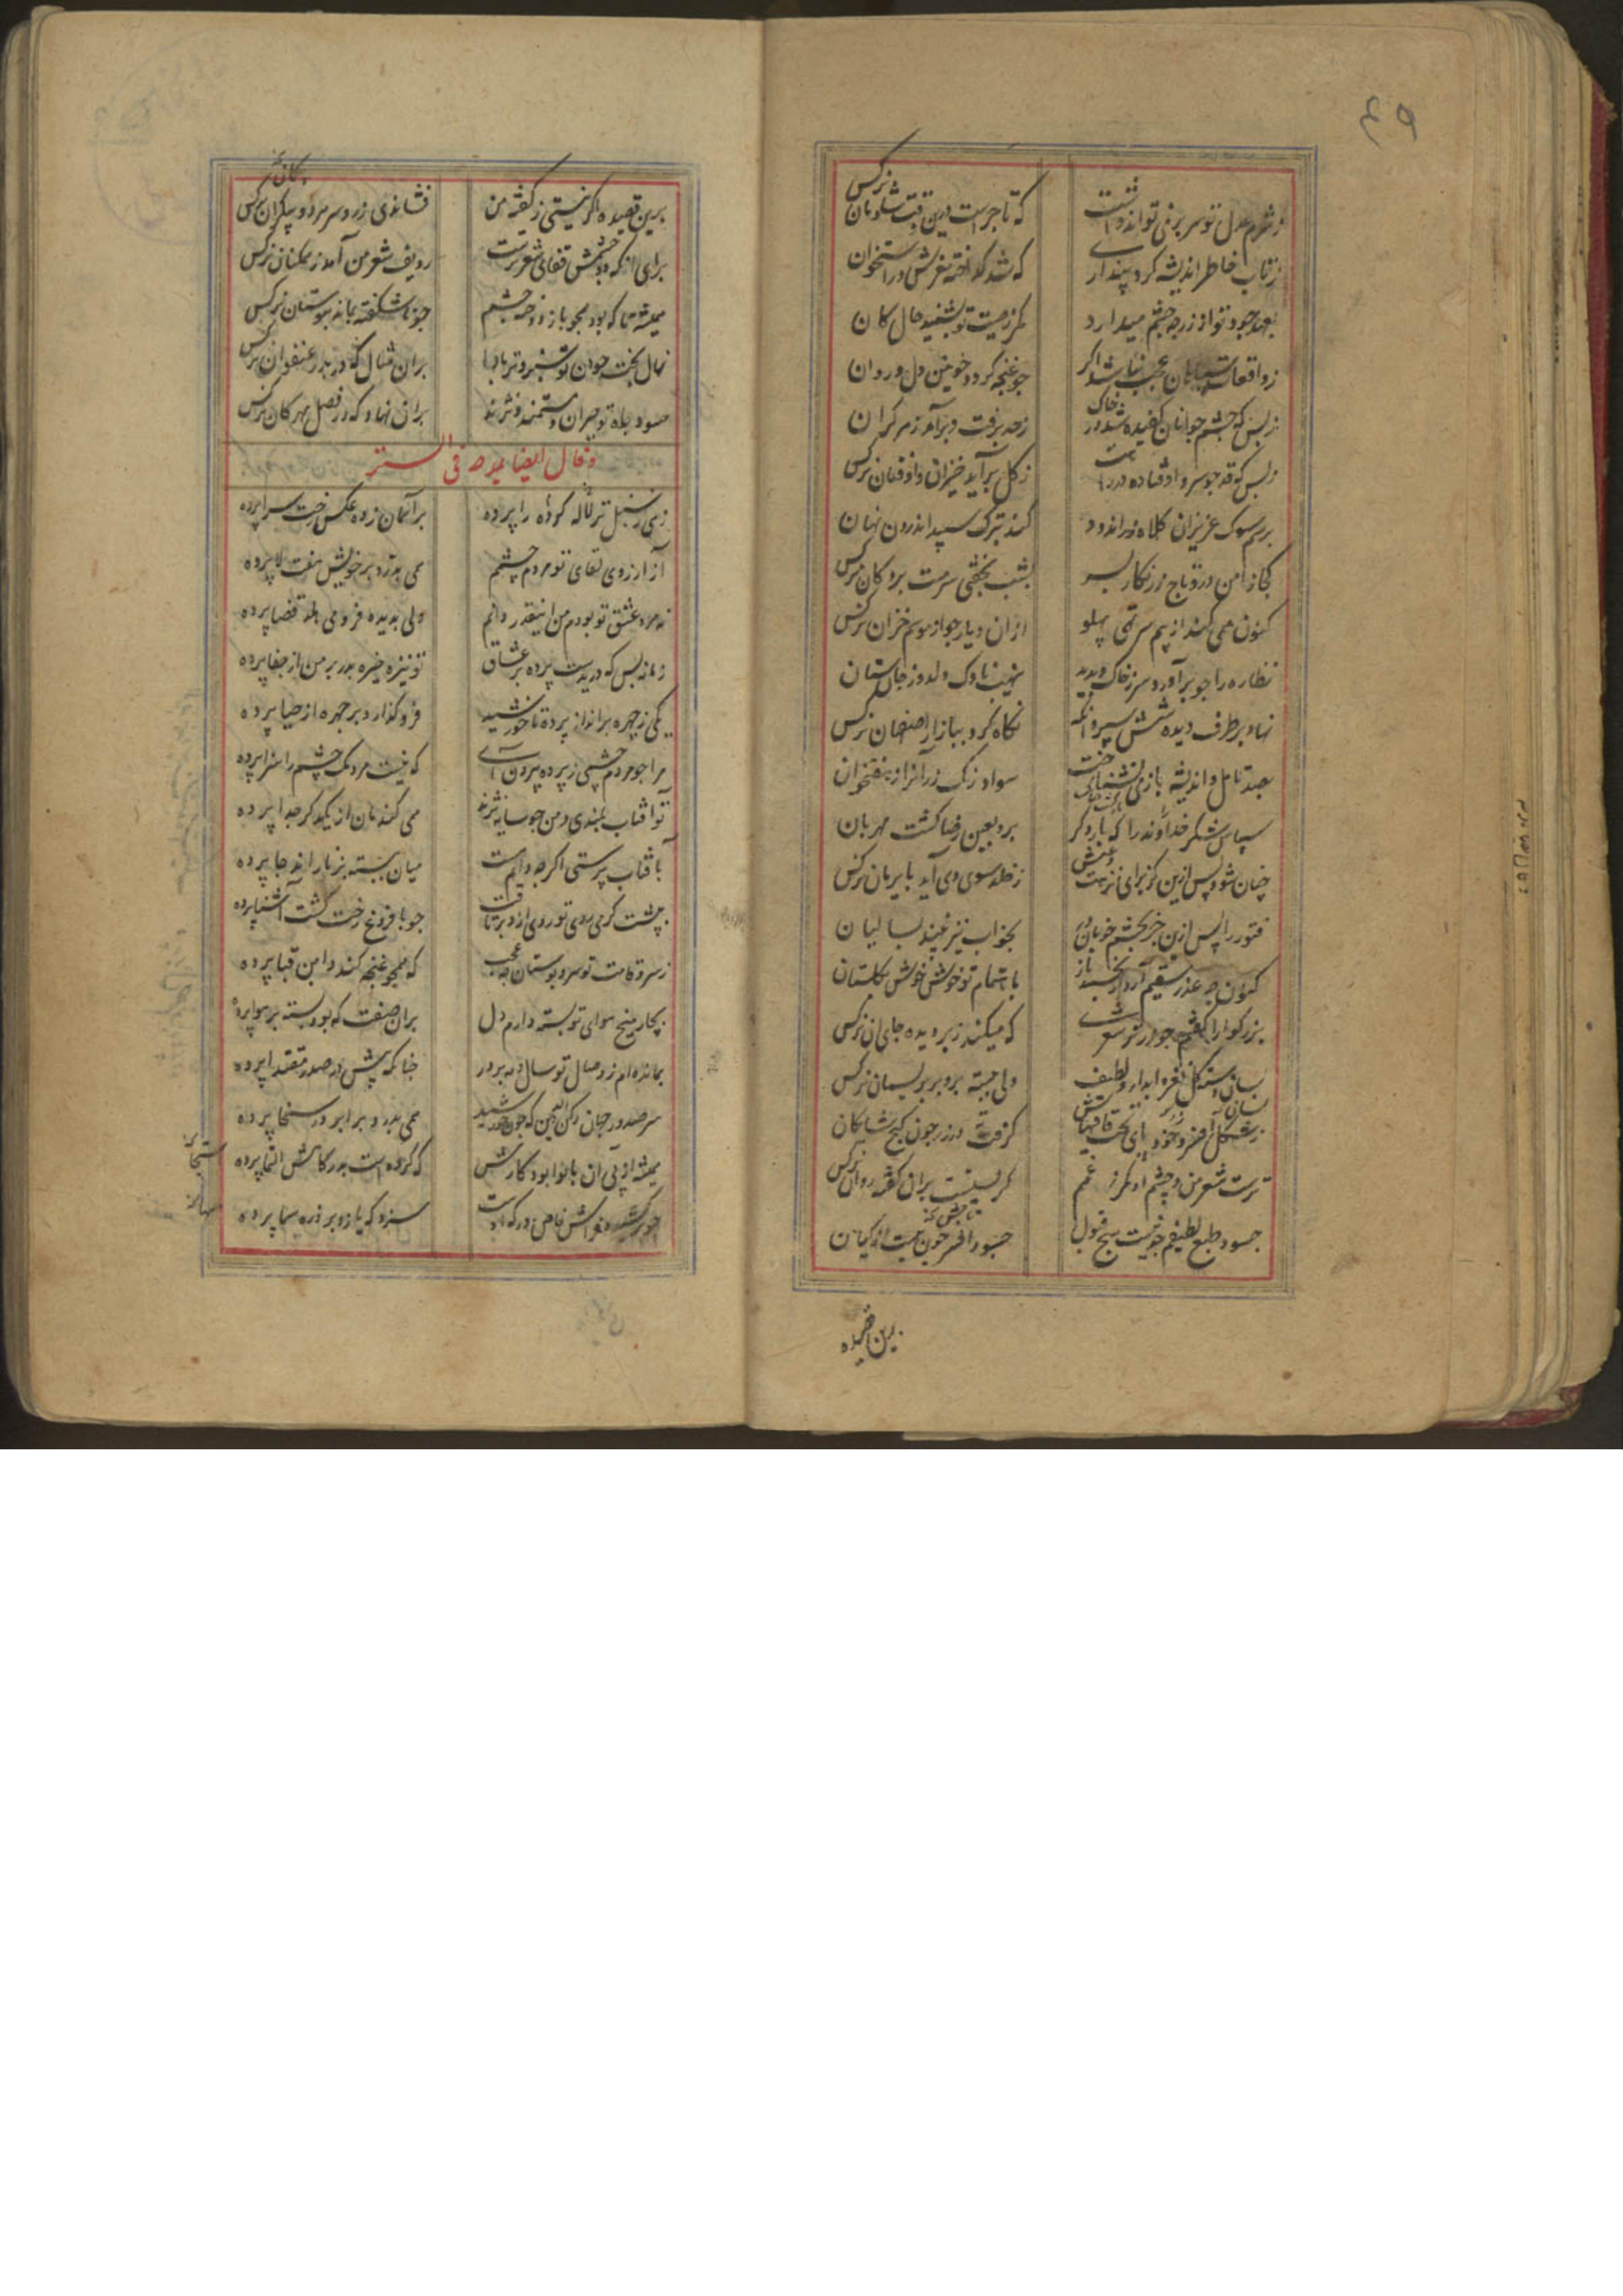 ز شرم عدل تو سر بر نمی تواند داشت
که تاجرست درین وقت شادمان نرکس
ز تاب خاطر اندیشه کرد پنداری
که شد کداخته مغزش در استخوان
بعهد جود تو از زر چه چشم میدارد
مکر ز صیت تو بشنید حال کان
زواقعات سپاهان عجب نباشد اکر
جو غنجه کردد خونین دل و روان
ز بس که جشم جوانان کفیده شد در خاک
ز حد برفت و برآمد ز هر کران
ز بس که قد جو سرو اوفتاده است درو
ز کل برآید خیزان و اوفتان نرکس
برسم سوک عزیزان کلاه زراندود
کند بترک سپید اندرون نهان
کجا ز امن درو تاج زرنکار بسر
بشب بخفتی سرمست بر دکان نرکس
کنون همی کند از بیم سر تهی پهلو
ازان دیار جو از موسم خزان نرکس
نظاره را جو برآورد سر ز خاک و بدید
نهیب ناوک دلدوز جان ستان
نهاد بر طرف دیده شش سپر وانکه
نکاه کرد ببازار اصفهان نرکس
بصد تامل و اندیشه باز می نشناخت
سواد زنک زر آنرا ز هفتخوان
سپاس و شکر خداوند را که بار دکر
برو بعین رضا کشت مهربان
چنان شود پس ازین کز برای نزهت و عیش
ز خلد سوی وی آید بایرمان نرکس
فتور را پس ازین جز بجشم خوبان در
بخواب نیز نبیند بسالیان
کنون چه عذر سقیم آرد ار نخسبد باز
باهتمام تو خوش خوش بکلستان
بزرکوارا کفتم جو در تو شعری
که میکند زبر دیده جای آن نرکس
بسان دسته کل نغز و ابدار و لطیف
ولی جسته برو بر بریسمان نرکس
کرفت در زر جون کنج شایکان
ترست شعر من و چشم او مکر ز غم
کریستست بران کفته روان نرکس
حسود طبع لطیفم
برین قصیده
برین قصیده اکر نیستی ز کفته من
فشاندی زر و سر هر دو بیکران نرکس
برای آنکه دو چشمش قفای شعر ترست
ردیف شعر من آمد ز همکنان نرکس
همیشه تا که بود همجو باز دوخته جشم
جو ناشکفته بماند ببوستان نرکس
نهال بخت جوان تو سبز و تر بادا
بران مثال که در بدو عنفوان نرکس
حسود جاه تو حیران و مستمند و نژند
بران نهاد که در فصل مهرکان نرکس
و قال ایضا یمدحه فی الستر
زهی ز سنبل تر لاله کرده را پرده
بر آسمان زده عکس رخت سراپرده
از آرزوی لقای تو مردم چشمم
همی بدرد بر خویش هفت لا پرده
نه مرد عشق تو بودم من اینقدر دانم
ولی بدیده فرو می هلد قضا پرده
زمانه بس که دریدست پرده بر عشاق
تو نیز خیره مدر بر من از جفا پرده
یکی ز چهره برانداز پرده تا خورشید
فرو کذارد بر جهره از حیا پرده
مرا جو مردم چشمی ز پرده بیرون آی
که نیست مردمک چشم را سزا پرده
تو آفتاب بلندی و من جو سایه نژند
همی کندمان از یکدکر جدا پرده
بآفتاب پرستی اکر چه دایم هست
میان ببسته بزنار اندجا پرده
به پشت کرمی روی تو روی ازو برتافت
جو با فروغ رخت کشت آشنا پرده
ز سرو قامت تو سرو بوستان چه عجب
که همچو غنچه کند دامن قبا پرده
بچار میخ هوای تو بسته دارم دل
بران صفت که بود بسته بر هوا پرده
بمانده ام ز وصال تو سال و مه بر در
جنانکه پیش در صدر مقتدا پرده
سر صدور جهان رکن دین که جون خورشید
همی بدرد بر ابر در سخا پرده
همیشه از پی آن بانوا بود کارش
که کرده است بدرکاهش التجا پرده
سزد که یازد بر ذره سما پرده